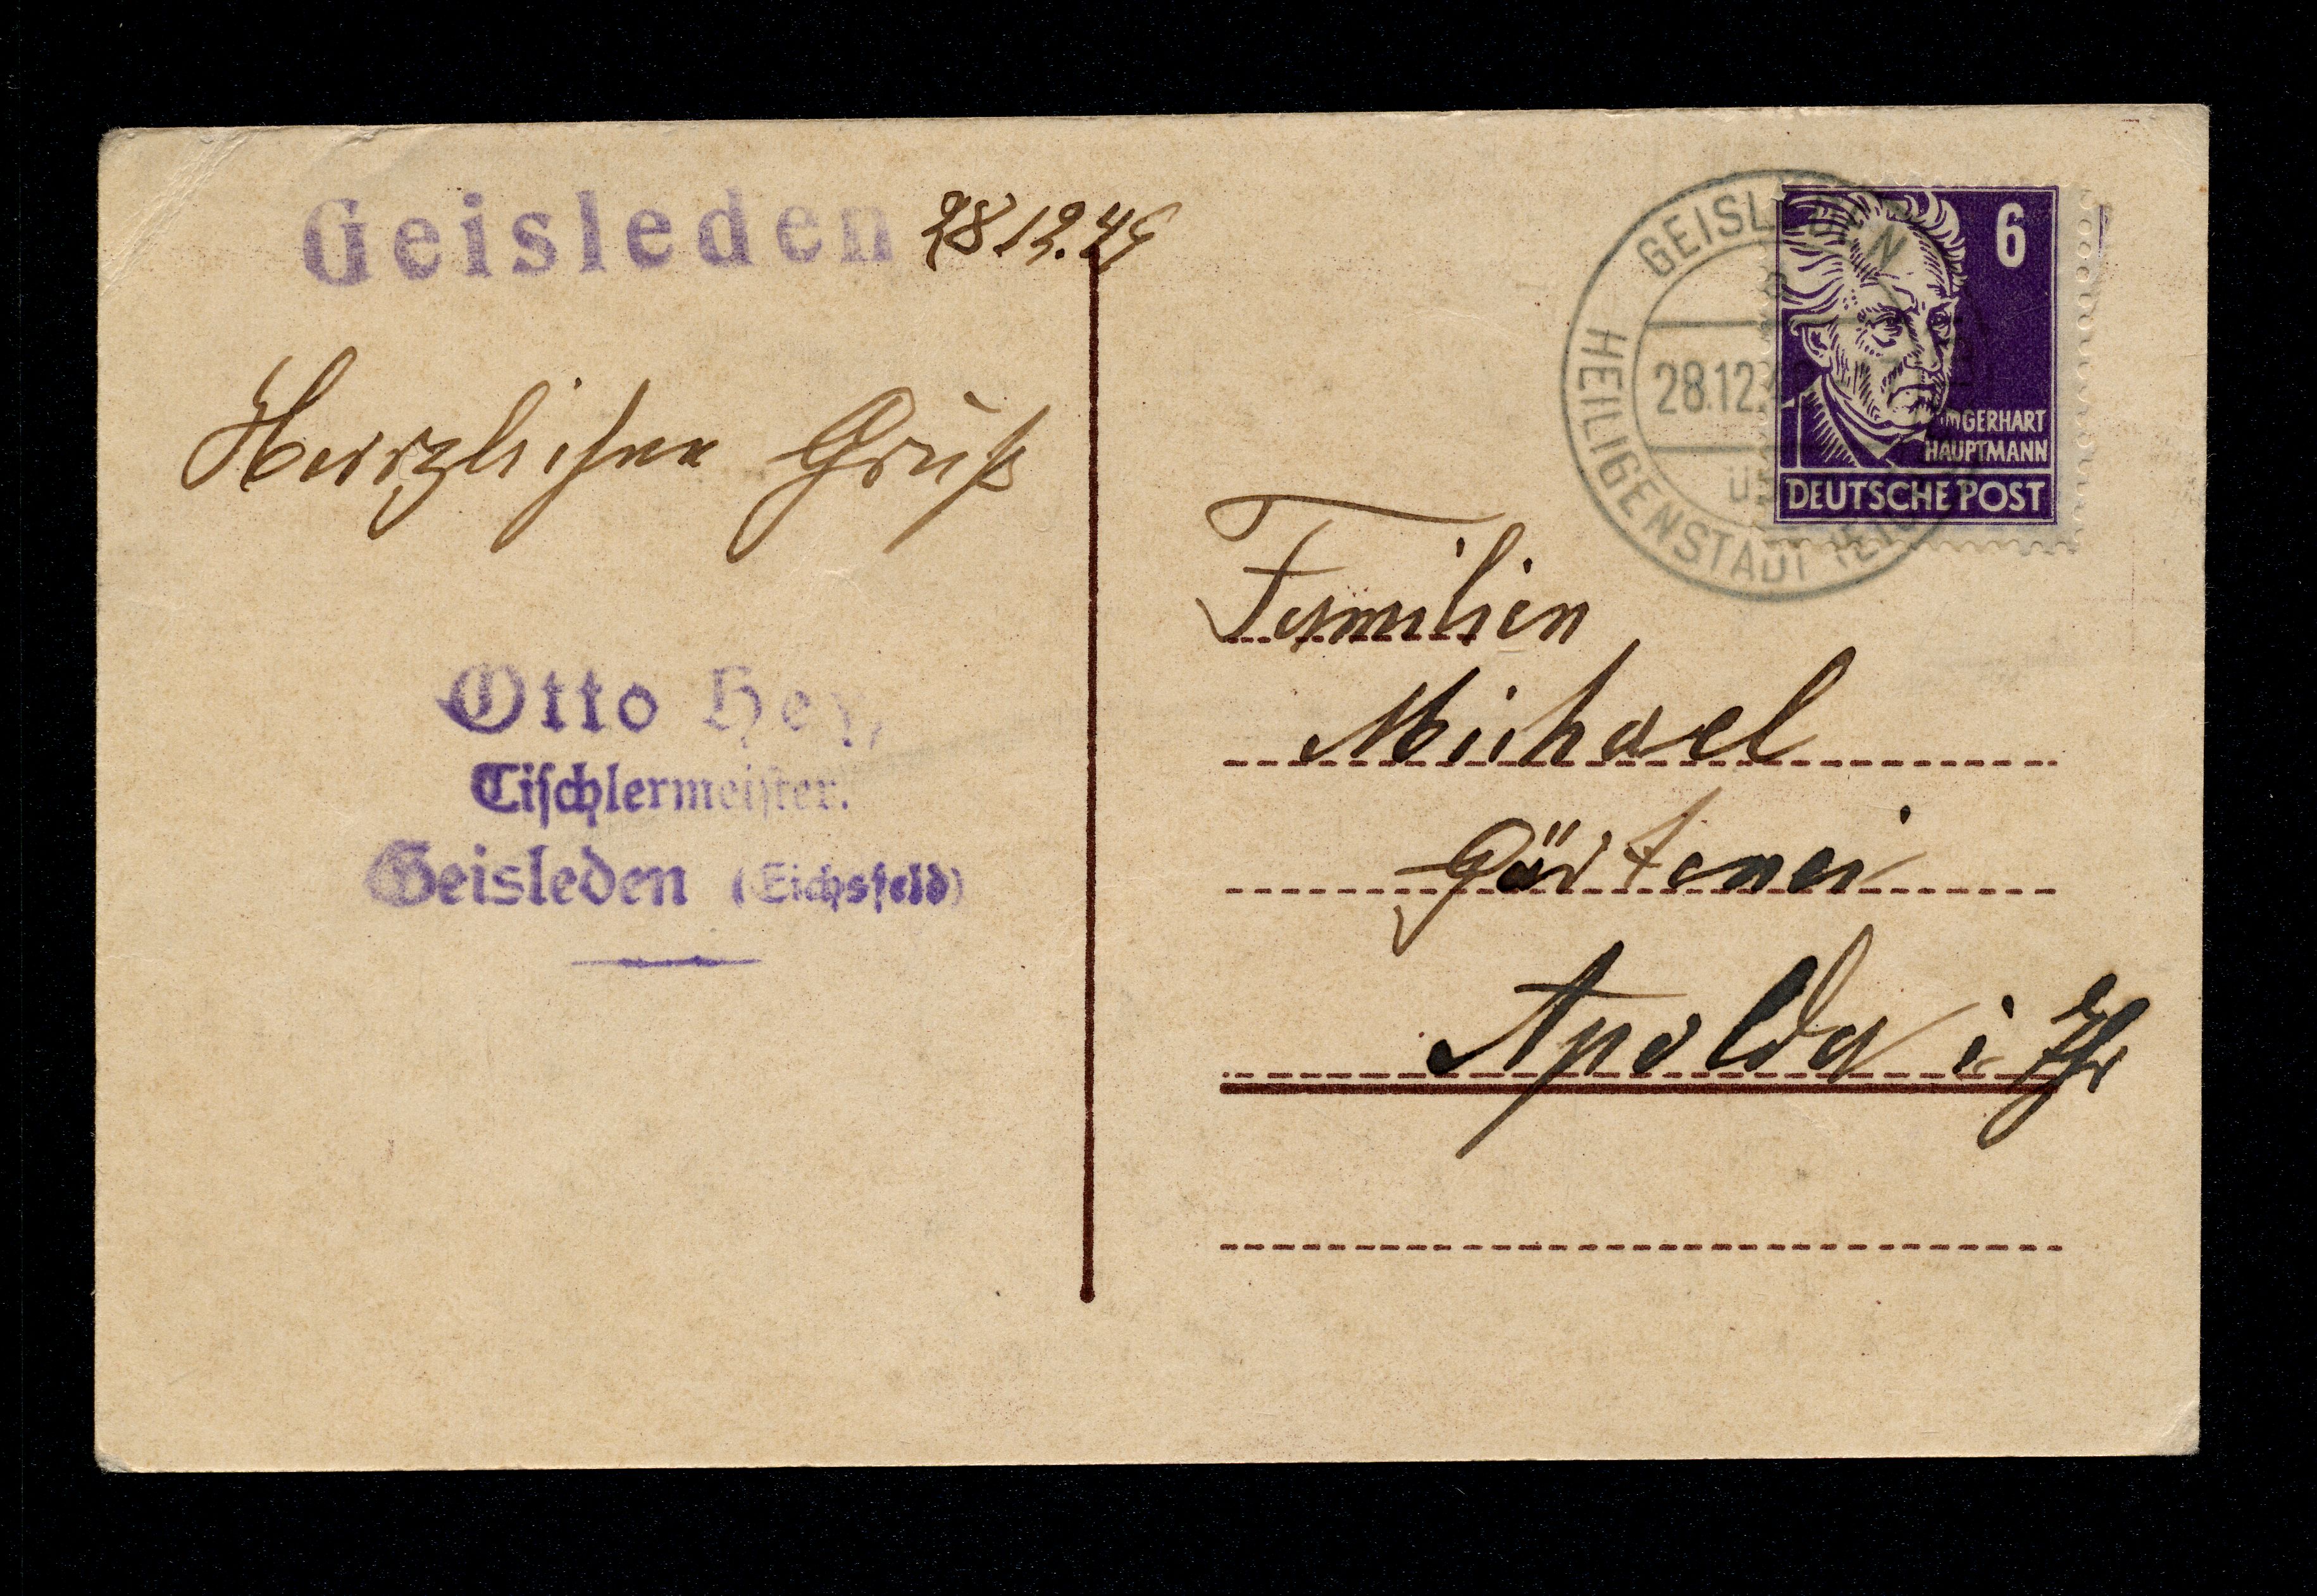 Geisleden 28.12.49
Herzlichen Gruß
Otto Hey,
Tischlermeister.
Geisleden (Eichsfeld)
GEISLEDEN
28.12.4
ÜBER
HEILIGENSTADT (EICHSF)
6
GERHART
HAUPTMANN
DEUTSCHE POST
Familien
Michael
Gärtenei
Apolda i. Thr